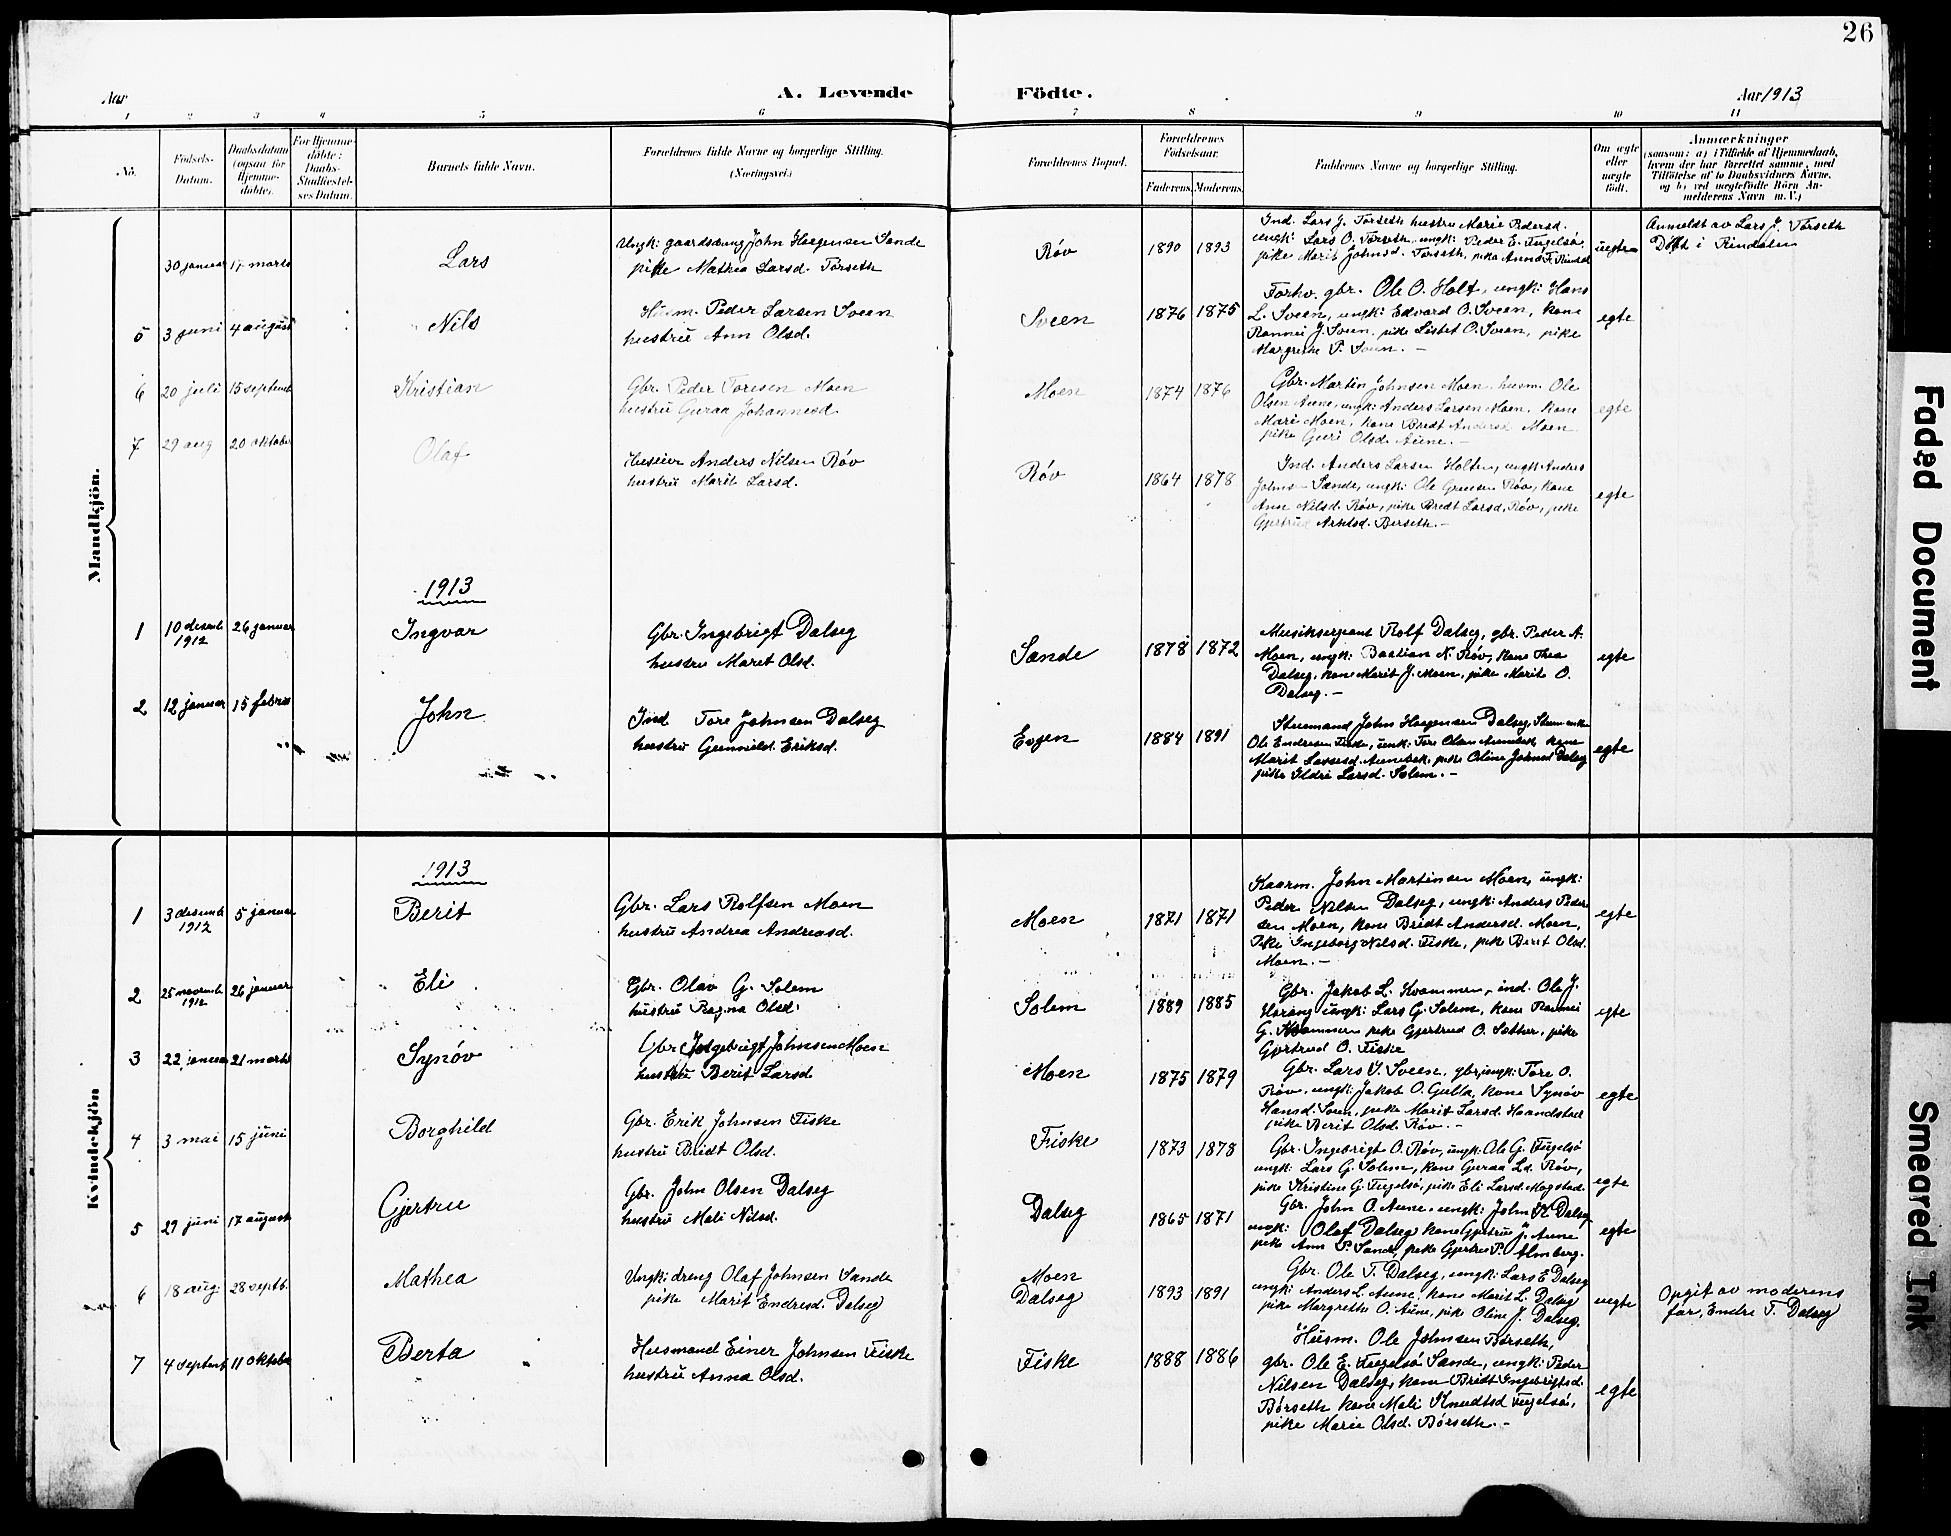 26
Aar
A. Levende
Födte.
Aar 1913
1 2 3 4 5 6 7 8 9 10 11
No.
Födsels-
Datum.
Daabsdatum
(ogsaa for
Hjemme-
døbte).
For Hjemme-
döbte:
Daabs-
Stadfæstel-
ses Datum.
Barnets fulde Navn.
Forældrenes fulde Navne og borgerlige Stilling.
(Næringsvei.)
Forældrenes Bopæl.
Forældrenes
Födselsaar.
Faderens. Moderens.
Faddernes Navne og borgerlige Stilling.
Om ægte
eller
uægte
födt.
Anmærkninger
(saasom: a) i Tilfælde af Hjemmedaab,
hvem der har forrettet samme, med
Tilföielse af to Daabsvidners Navne,
og b) ved uægtefödte Börn An-
melderens Navn m. V.)
Mandkjön.
30 januar 17 marts
Lars
Ungk: gaardsdreng John Haagensen Sande
pike Mathea Larsd. Törseth
Röv
1890 1893
Ind. Lars J. Törseth hustru Marie Pedersd.
ungk: Lars O. Törseth, ungk: Peder E. Fugelsö,
pike Marit Johnsd. Törseth, pike Anna F. Rindal
uegte
Anmeldt av Lars J. Törseth
Döbt i Rindalen
5 3 juni 4 august
Nils
Husm. Peder Larsen Sveen
hustru Ann Olsd.
Sveen
1876 1875
Forhv. gbr. Ole O. Holt, ungk: Hans
L. Sveen, ungk: Edvard O. Sveen, kone
Rannei J. Sveen, pike Lisbet O. Sveen, pike
Margrethe P. Sveen. -
egte
6 20 juli 15 septemb
Kristian
Gbr. Peder Toresen Moen
hustru Guraa Johannesd.
Moen
1874 1876
Gbr. Martin Johnsen Moen, husm. Ole
Olsen Aune, ungk: Anders Larsen Moen, kone
Mari Moen, kone Bredt Andersd. Moen
pike Guri Olsd. Aune. -
egte
7 29 aug 20 oktober
Olaf
Huseier Anders Nilsen Röv
hustru Marit Larsd.
Röv
1864 1878
Ind. Anders Larsen Holten, ungk: Anders
Johns. Sande, ungk: Ole Röv, kone
Ann Nilsd. Röv, pike Bredt Larsd. Röv, pike
Gjertrud Berseth. -
egte
1913
1 10 desemb 26 januar
1912
Ingvar
Gbr. Ingebrigt Dalseg
hustru Maret Olsd.
Sande
1878 1872
Musiksergeant Rolf Dalseg, gbr. Peder A.
Moen, ungk: Bastian N. Röv, kone Thea
Dalseg, kone Marit J. Moen, pike Marit O.
Dalseg. -
egte
2 12 januar 15 februa
John
Ind Tore Johnsen Dalseg
hustru Gunnild Eriksd.
Evjen
1884 1891
Stuemand John Haagensen Dalseg, Stuenke
Ole Endresen Fiske, ungk: Tore Olsen Aunebek, kone
Marit Lassesd. Aunebek, pike Oline Johnsd Dalseg
pike Ildri Larsd. Solem. -
egte
Kvindekjön
1913
1 3 desemb 5 januar
1912
Berit
Gbr. Lars Rolfsen Moen
hustru Andrea Andreasd.
Moen
1871 1871
Kaarm. John Martinsen Moen, ungk:
Peder Nilsen Dalseg, ungk: Anders Peder
sen Moen, kone Bredt Andersd. Moen,
Pike Ingeborg Nilsd. Fiske, pike Berit Olsd.
Moen. -
egte
2 25 novemb 26 januar
1912
Eli
Gbr. Olav G. Solem
hustru Ragna Olsd.
Solem
1889 1885
Gbr. Jakob L. Kvammen, ind. Ole J.
Harang ungk: Lars G. Solem, kone Rannei
G. Kvammen pike Gjertrud O. Sæther, pike
Gjertrud O. Fiske
egte
3 22 januar 21 marts
Synöv
Gbr Ingebrigt Johnsen Moen
hustru Berit Larsd
Moen
1875 1879
Gbr. Lars S. Sveen, gbr, ungk: Tore O.
Röv, ungk: Jakob O. Gulla, kone Synöv
Hansd. Sveen, pike Marit Larsd. Haandstad
pike Berit Olsd. Röv. -
egte
4 3 mai 15 juni
Borghild
Gbr. Erik Johnsen Fiske
hustru Bredt Olsd.
Fiske
1873 1878
Gbr. Ingebrigt O. Röv, ungk: Ole G. Fugelsö
ungk: Lars G. Solem, kone Guraa Ld. Röv,
pike Kristine G. Fugelsö, pike Eli Larsd. Mogstad.
egte
5 29 juni 17 august
Gjertru
Gbr. John Olsen Dalseg
hustru Mali Nilsd.
Dalseg
1865 1871
Gbr. John O. Aune, ungk: John K Dalseg
ungk: Olaf Dalseg kone Gjertrud J. Aune
pike Ann P. Sande, pike Gjertru P. Almberg.
egte
6 18 aug. 28 septb.
Mathea
Ungk: dreng Olaf Johnsen Sande
pike Marit Endresd. Dalseg
Moen
Dalseg
1893 1891
Gbr. Ole T. Dalseg, ungk: Lars E Dalseg
ungk: Anders L. Aune, kone Marit L. Dalseg
pike Margrethe O. Aune, pike Oline J. Dalseg.
uegte
Opgit av moderens
far, Endre T. Dalseg
7 4 septemb 11 oktober
Berta
Husmand Einer Johnsen Fiske
hustru Anna Olsd.
Fiske
1888 1886
Husm. Ole Johnsen Börseth,
gbr. Ole E. Fugelsö Sande, ungk: Peder
Nilsen Dalseg, kone Bredt Ingebrigtsd.
Börseth kone Mali Knudtsd Fugelsö,
pike Marie Olsd. Börseth. -
egte
Faded Document
Smeared Ink